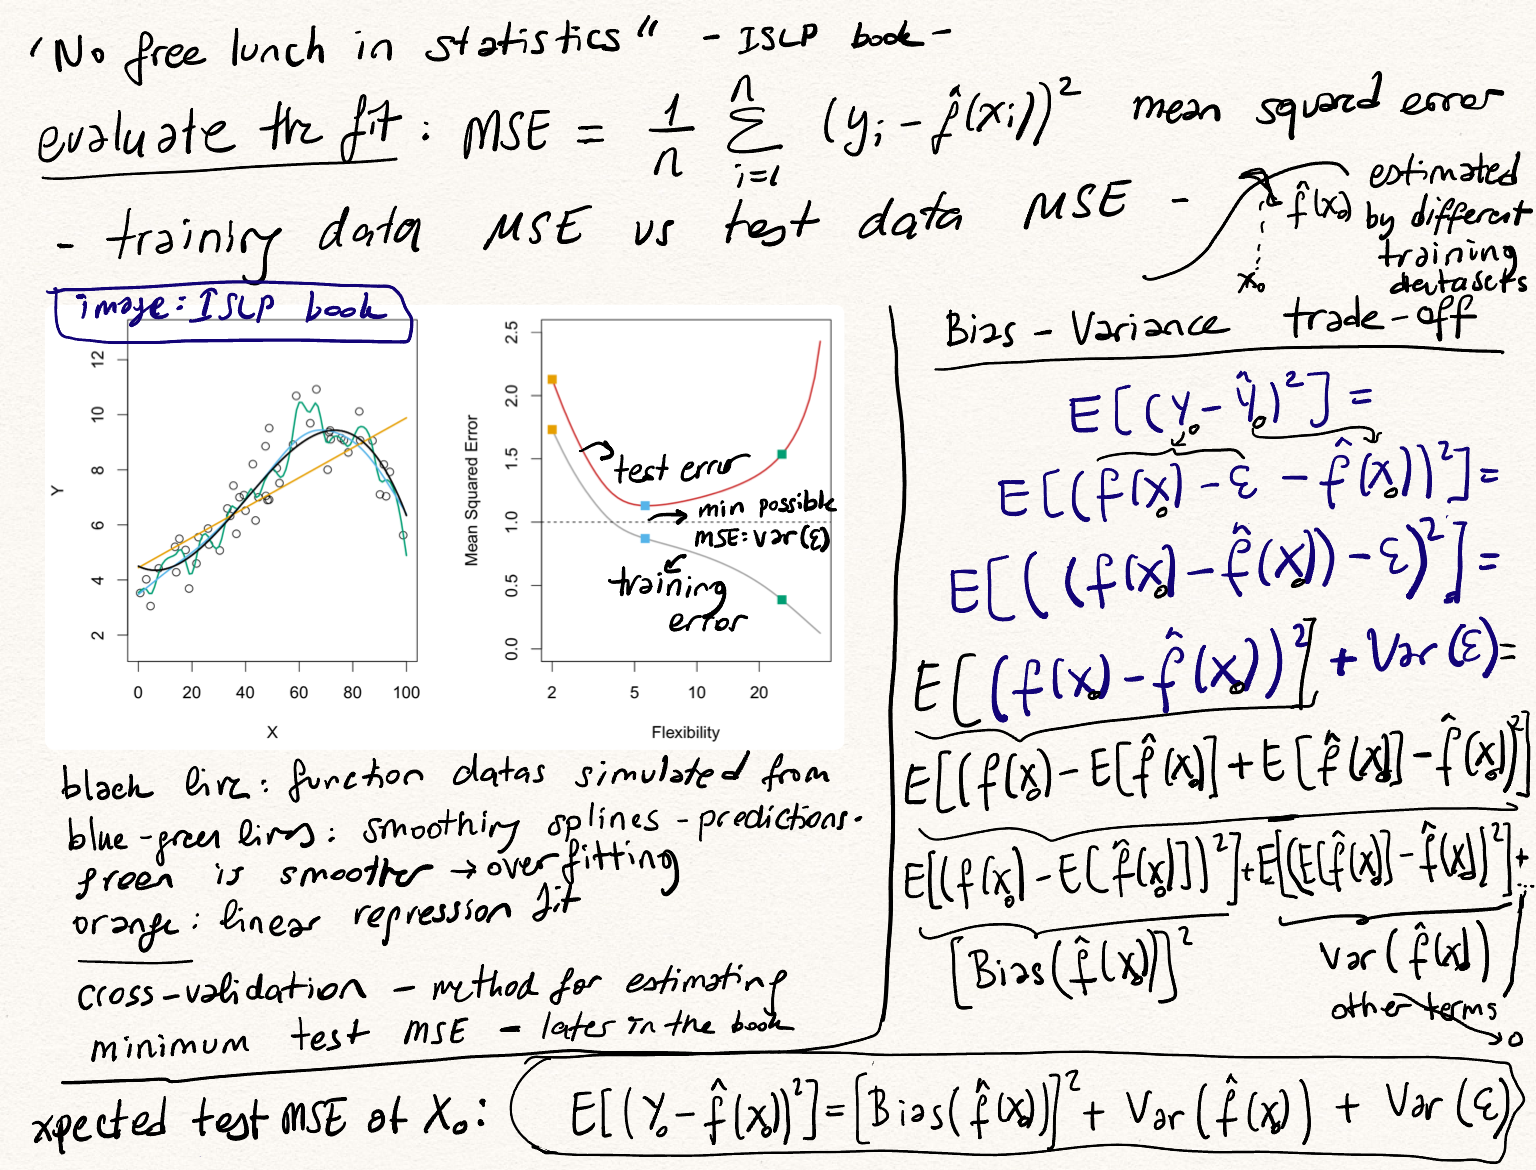 "No free lunch in statistics" - ISLP book -
evaluate the fit : MSE = 1/n Σ_{i=1}^{n} (y_i - f̂(x_i))² mean squard error
- training data MSE vs test data MSE -
f̂(x₀)
x₀
estimated
by different
training
datasets
image: ISLP book
12
10
8
6
4
2
Y
0 20 40 60 80 100
X
2.5
2.0
1.5
1.0
0.5
0.0
Mean Squared Error
test error
min possible
MSE: Var(ε)
training
error
2 5 10 20
Flexibility
black line: function datas simulated from
blue-green lines: smoothing splines - predictions.
green is smoother → overfitting
orange: linear regression fit
cross-validation - method for estimating
minimum test MSE - later in the book
Bias - Variance trade-off
E[(Y₀ - Ŷ₀)²] =
E[(f(x₀) - ε - f̂(x₀))²] =
E[((f(x₀) - f̂(x₀)) - ε)²] =
E[(f(x₀) - f̂(x₀))²] + Var(ε) =
E[(f(x₀) - E[f̂(x₀)] + E[f̂(x₀)] - f̂(x₀))²]
E[(f(x₀) - E[f̂(x₀)])²] + E[(E[f̂(x₀)] - f̂(x₀))²] + ...
[Bias(f̂(x₀))]² Var(f̂(x₀))
other terms → 0
xpected test MSE at X₀: E[(Y₀ - f̂(x₀))²] = [Bias(f̂(x₀))]² + Var(f̂(x₀)) + Var(ε)